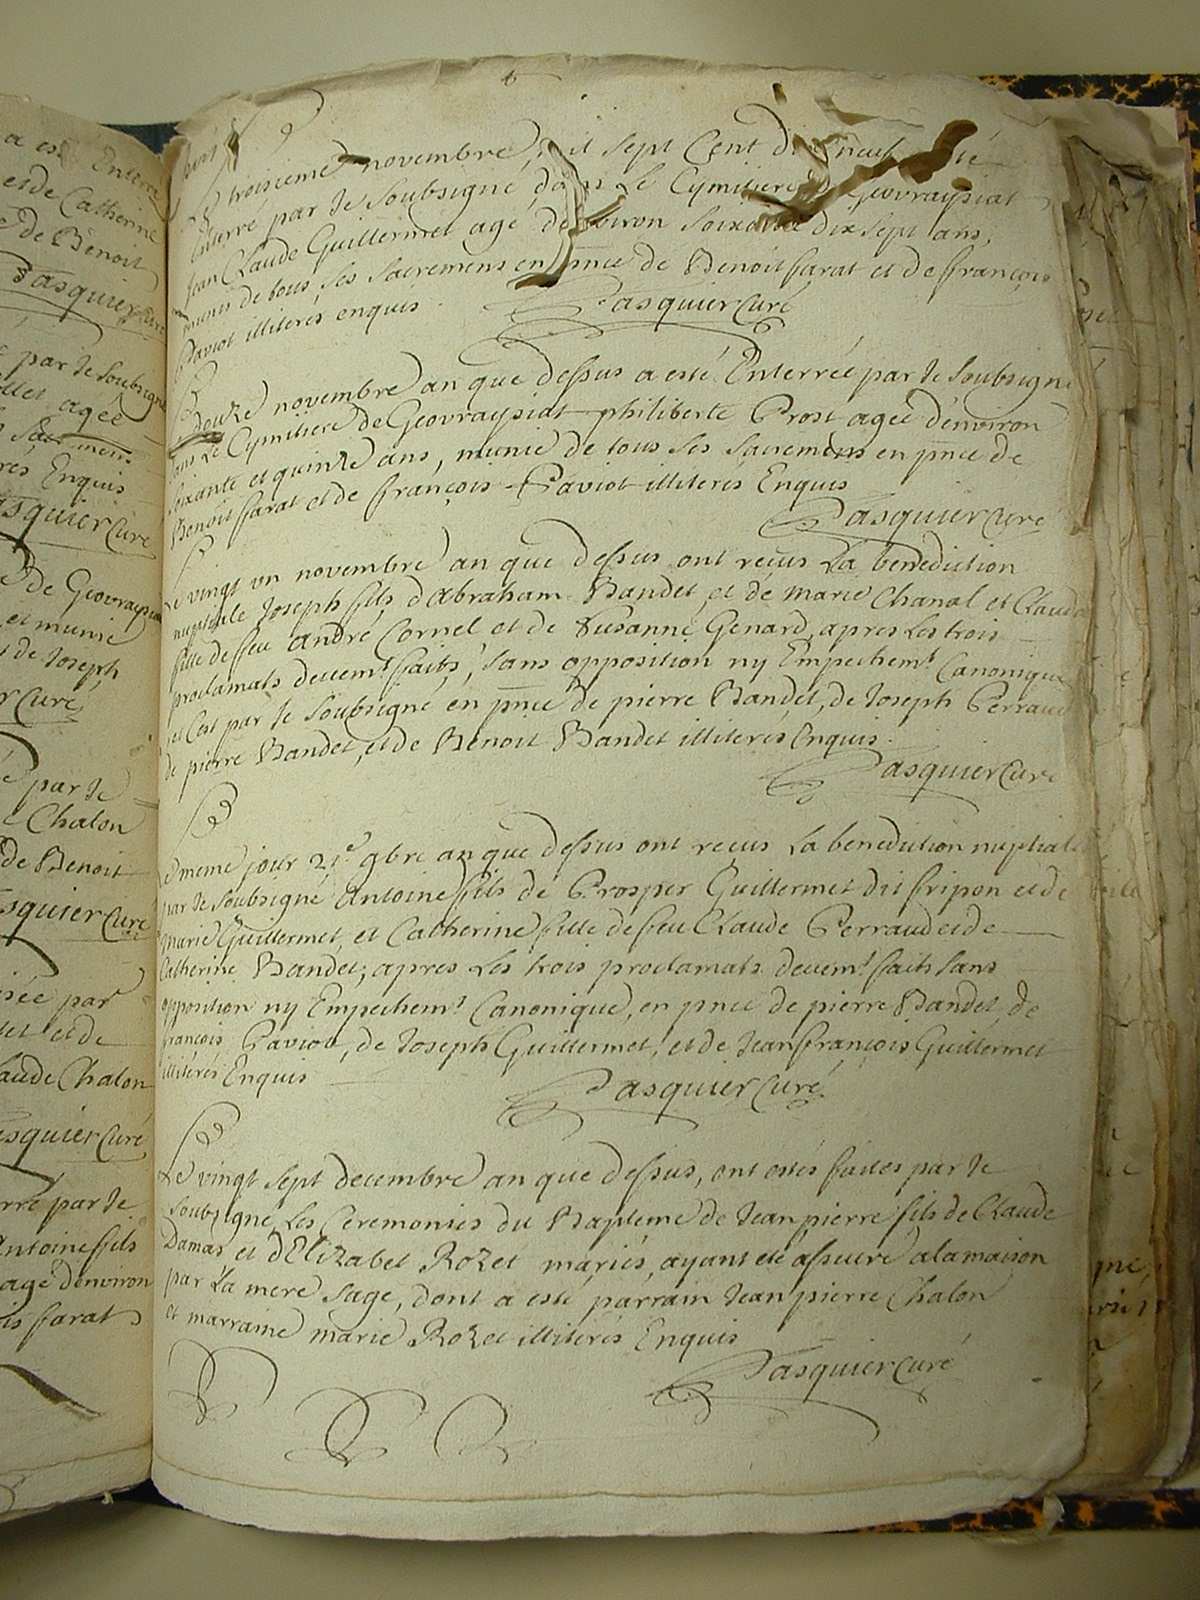 a esté Enterré
et de Catherine
de Benoit
Pasquier Curé
par Je Soubsigné
agée
Sacremens
Enquis
Pasquier Curé
de Geovraysiat
et munie
de Joseph
Curé
par Je
Chalon
de Benoit
Pasquier Curé
par
et de
Claude Chalon
Pasquier Curé
par Je
Antoine fils
agé d'environ
farat
troisieme novembre mil sept Cent dixneuf esté
Enterré par Je Soubsigné, dans Le Cymitiere de Geovraysiat
Jean Claude Guillermet agé d'environ soixante dix sept ans,
munis de tous ses sacremens en pnce de Benoit farat et de françois
Paviot illiterés enquis
Pasquier Curé
Le Douze novembre an que dessus a esté Enterrée par Je Soubsigné
dans Le Cymitiere de Geovraysiat philiberte Prost agée d'environ
soixante et quinze ans, munie de tous ses sacremens en pnce de
Benoit farat et de françois Paviot illiterés Enquis
Pasquier Curé
Le vingt un novembre an que dessus ont reçus La benediction
nuptiale Joseph fils d'Abraham Bandet, et de marie Chanal et Clauda
fille de feu andré Cornel et de Susanne Genard, apres Les trois
proclamats devemt faits, sans opposition ny Empechemt Canonique
et Cest par Je Soubsigné en pnce de pierre Bandet, de Joseph Perraud
de pierre Bandet, et de Benoit Bandet illiterés Enquis.
Pasquier Curé
Le meme jour 21e 9bre an que dessus ont recus La benediction nuptiale
par Je Soubsigné Antoine fils de Prosper Guillermet dit fripon et de
Marie Guillermet, et Catherine fille de feu Claude Perraud et de
Catherine Bandet; apres Les trois proclamats devemt faits sans
opposition ny Empechemt Canonique, en pnce de pierre Bandet, de
françois Paviot, de Joseph Guillermet, et de Jean françois Guillermet
illiterés Enquis
Pasquier Curé
Le vingt sept decembre an que dessus, ont estés faites par Je
Soubsigné Les Ceremonies du Bapteme de Jean pierre fils de Claude
Damas et d'Elizabet Rozet mariés, ayant eté asseuré a la maison
par La mere Sage, dont a esté parrain Jean pierre Chalon
et marraine marie Rozet illiterés Enquis
Pasquier Curé